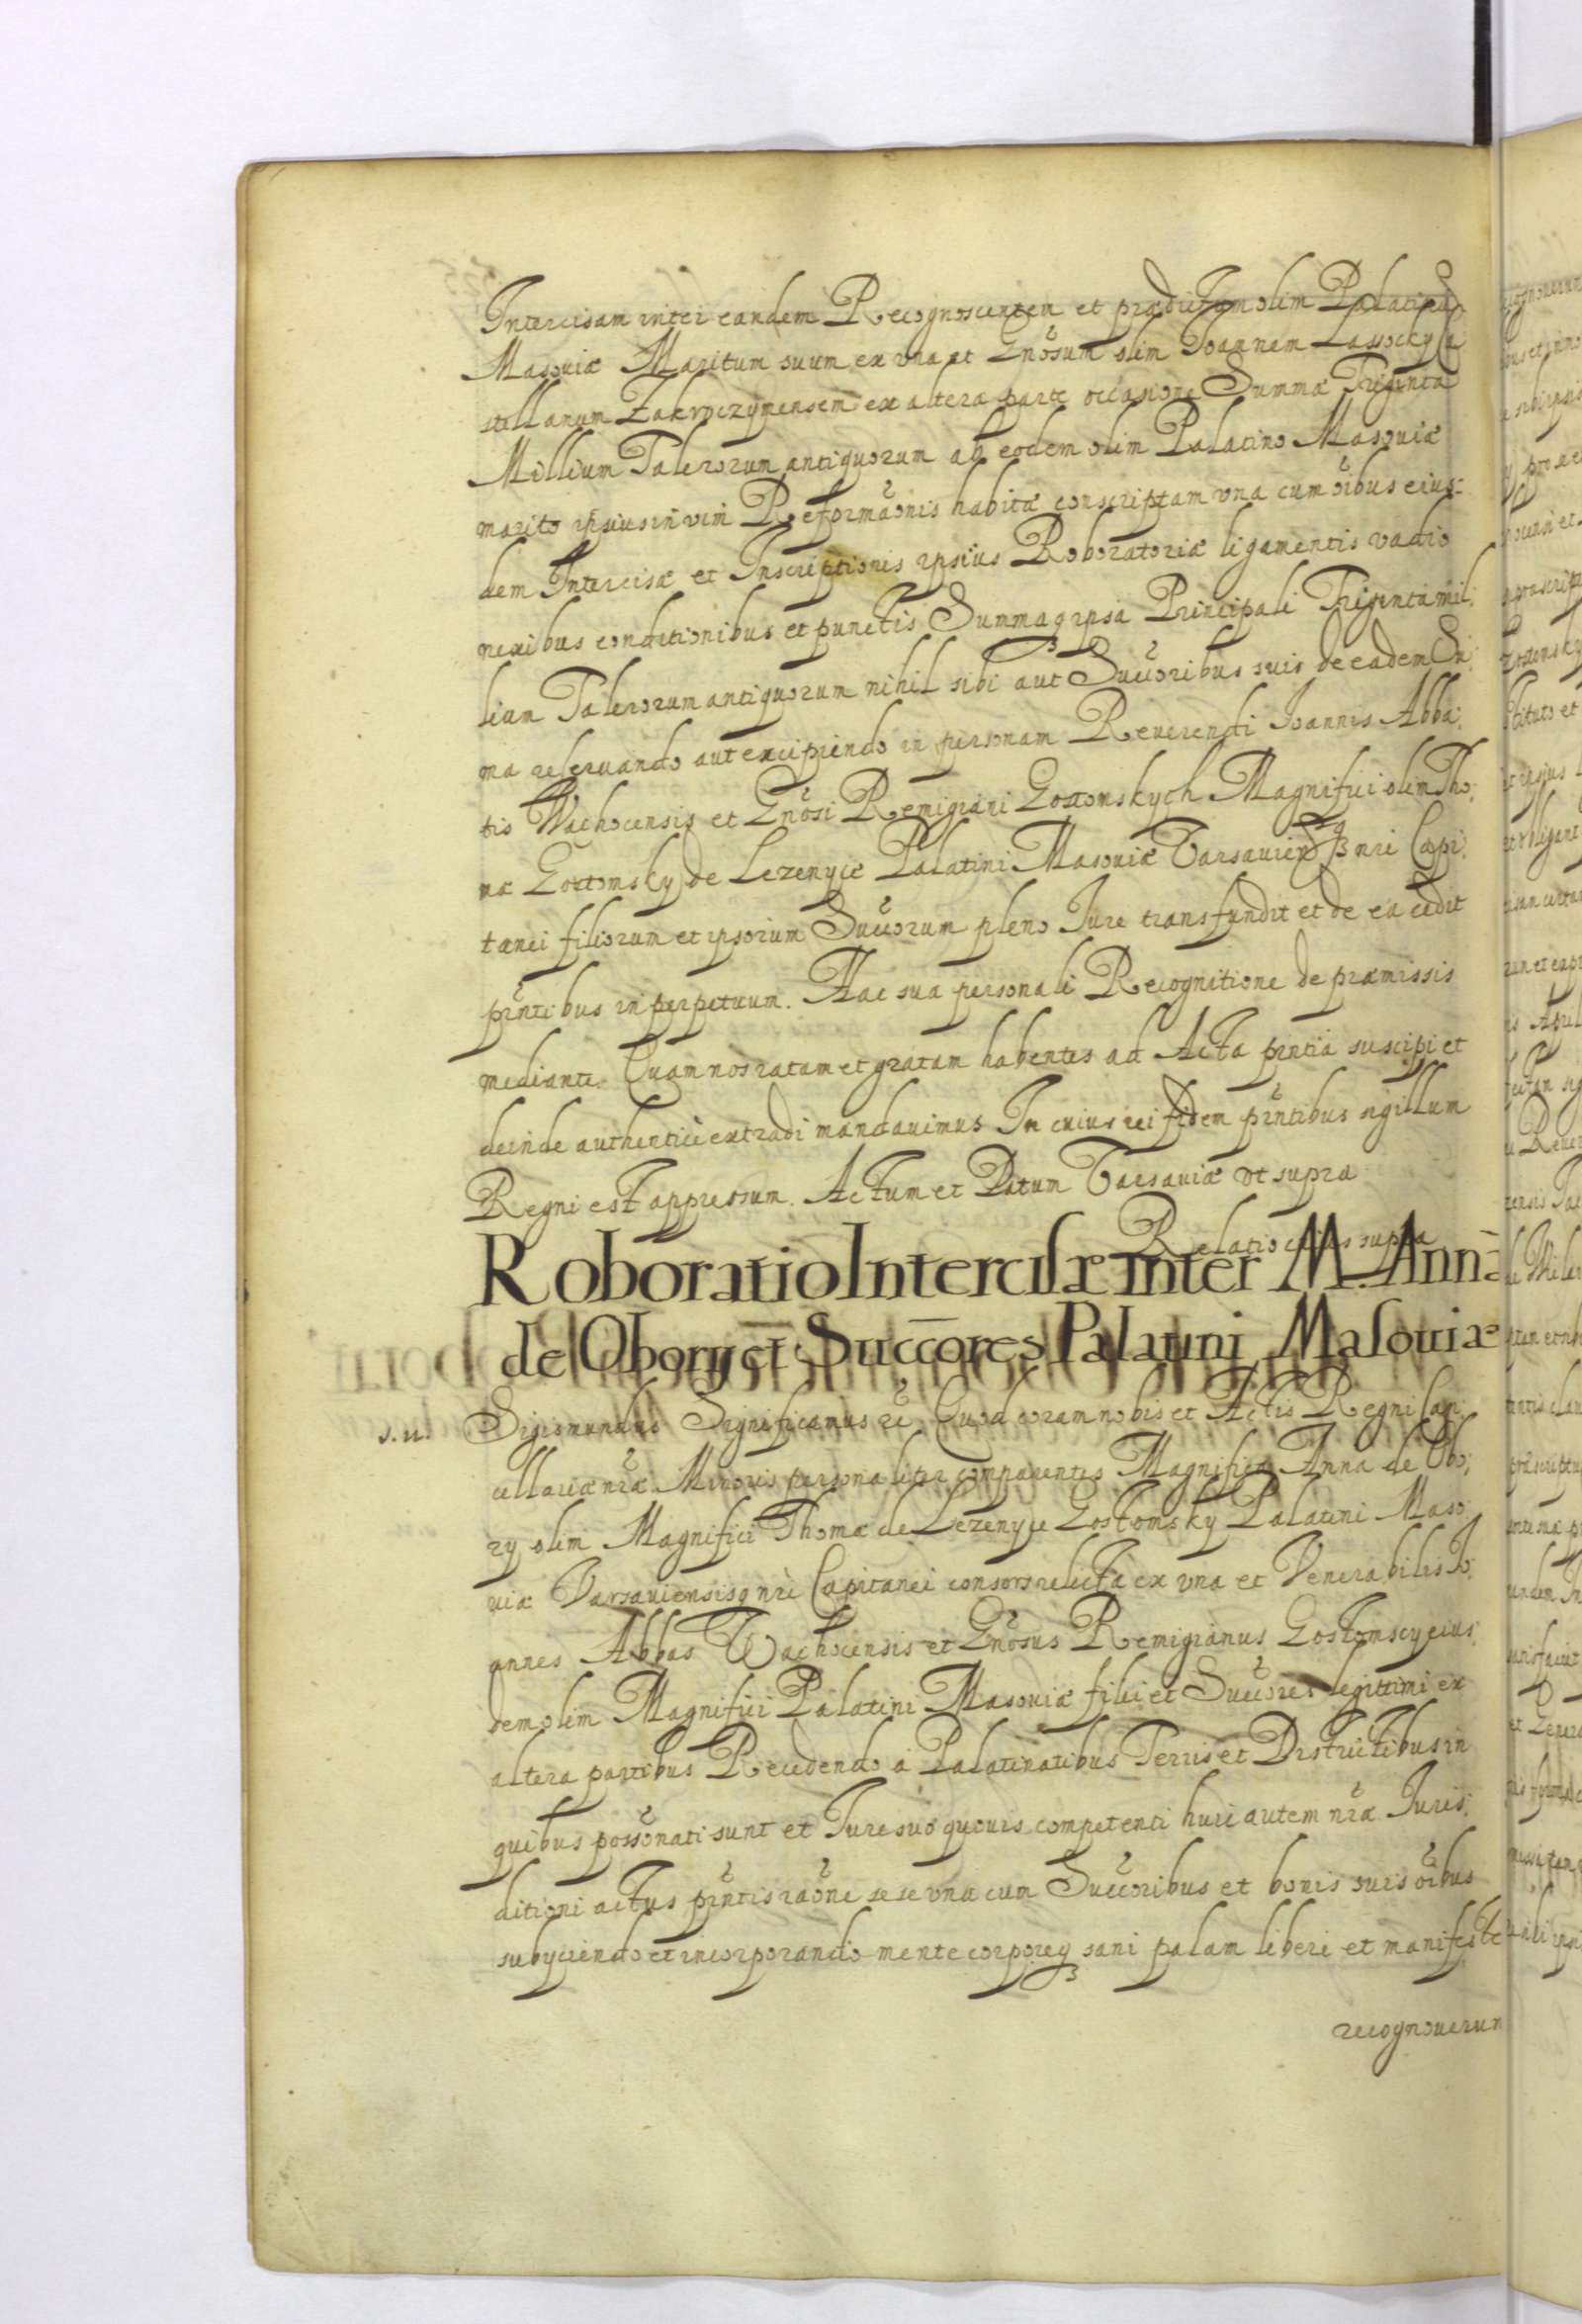 Intercisam inter eandem Recognoscentem et prædictum olim Palatinũ
Masoviæ Maritum suum ex vna et Gnõsum olim Ioannem Lassocky Ca
stellanum Zakroczymensem ex altera parte occasione Summæ Triginta
Millium Talerorum antiquorum ab eodem olim Palatino Masouiæ
marito ipsius in vim Reformãonis habitæ conscriptam vna cum oĩbus eius:
dem Intercisæ et Inscriptionis ipsius Roboratoriæ ligamentis vadio
nexibus conditionibus et punctis Summaq ipsa Principali Triginta mil:
lium Talerorum antiquorum nihil sibi aut Succõribus suis de eadem Sũ:
ma reseruando aut excipiendo in personam Reuerendi Ioannis Abba:
tis Wachocensis et Gnõsi Remigiani Gostomskych Magnifici olim Tho:
mæ Gostomsky de Lezenyce Palatini Masouiæ Varsauien nri Capi:
tanei filiorum et ipsorum Succõrum pleno Iure transfundit et de ea cedit
pñtibus in perpetuum. Hac sua personali Recognitione de præmissis
mediante. Quam nos ratam et gratam habentes ad Acta pñtia suscipi et
deinde authentice extradi mandauimus. In cuius rei fidem pñtibus sigillum
Regni est appressum. Actum et Datum Varsauiæ vt supra
Relatio eius supra
Roboratio Intercisæ inter M. Annã
de Obory et Succõres Palatini Masouiæ
S. u. Sigismundus Significamus rẽ. Quod coram nobis et Actis Regni Can
cellariæ nr̃æ Minoris personaliter comparentes Magnifica Anna de Obo:
ry olim Magnifici Thomæ de Lezenyce Gostomsky Palatini Maso:
uiæ Varsauiensisq nri Capitanei consors relicta ex vna et Venerabilis Io:
annes Abbas Wachocensis et Gnõsus Remigianus Gostomscy eius:
dem olim Magnifici Palatini Masouiæ filii et Succõres legittimi ex
altera partibus Recedendo a Palatinatibus Terris et Districtibus in
quibus possõnati sunt et Iure suo quouis competenti huic autem nr̃æ Iuris:
ditioni actus pñtis raõne sese vna cum Succõribus et bonis suis oĩbus
subyciendo et incorporando mente corporeq sani palam libere et manifeste
recognouerun